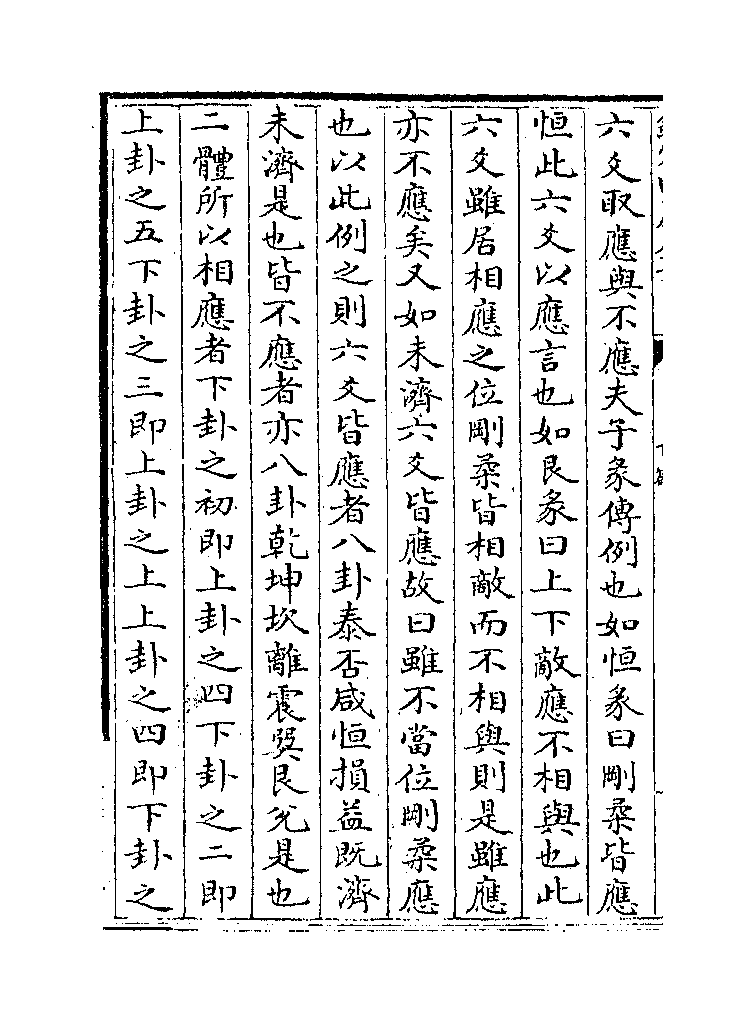 六爻取應與不應夫子彖傳例也如恒彖曰剛柔皆應
恒此六爻以應言也如艮彖曰上下敵應不相與也此
六爻雖居相應之位剛柔皆相敵而不相與則是雖應
亦不應矣又如未濟六爻皆應故曰雖不當位剛柔應
也以此例之則六爻皆應者八卦泰否咸恒損益既濟
未濟是也皆不應者亦八卦乾坤坎離震巽艮兊是也
二體所以相應者下卦之初即上卦之四下卦之二即
上卦之五下卦之三即上卦之上上卦之四即下卦之